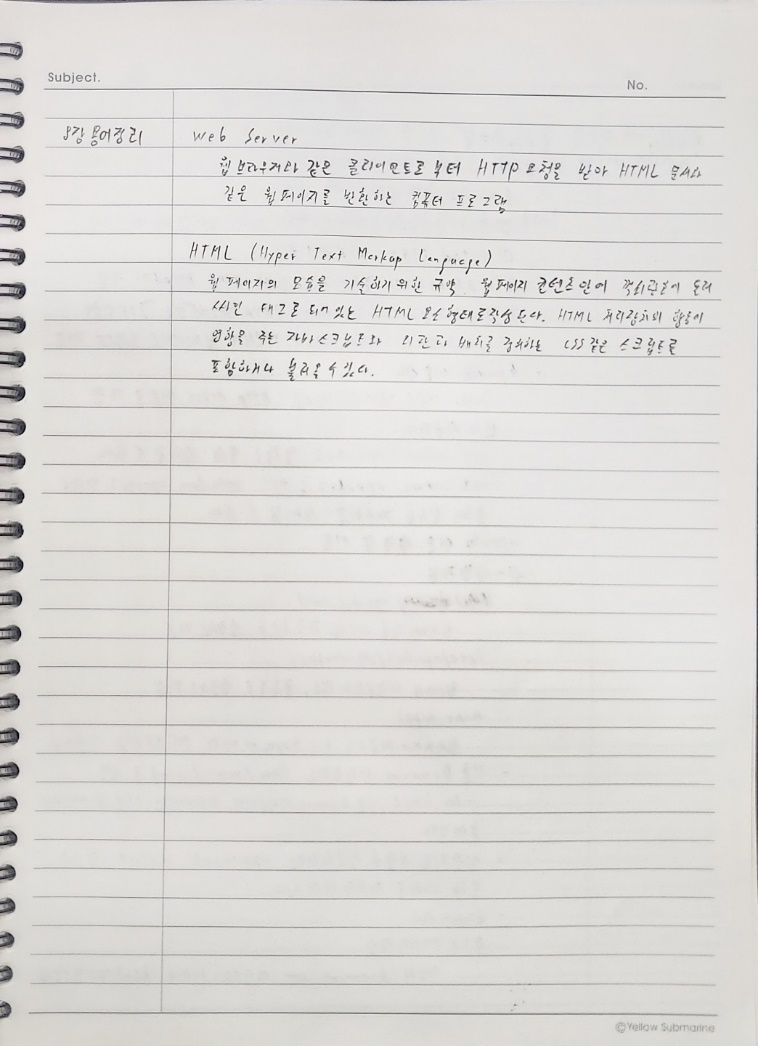 Subject.
No.
8강 용어정리
Web Server
웹 브라우저와 같은 클라이언트로부터 HTTP 요청을 받아 HTML 문서와
같은 웹 페이지를 반환하는 컴퓨터 프로그램
HTML (Hyper Text Markup Language)
웹 페이지의 모습을 기술하기 위한 규약. 웹 페이지 콘텐츠 안에 꺽쇠괄호에 둘러
싸인 태그로 되어 있는 HTML 요소 형태로 작성 된다. HTML 처리장치의 행동에
영향을 주는 자바스크립트와 외관과 배치를 정의하는 CSS 같은 스크립트를
포함하거나 불러올 수 있다.
©Yellow Submarine